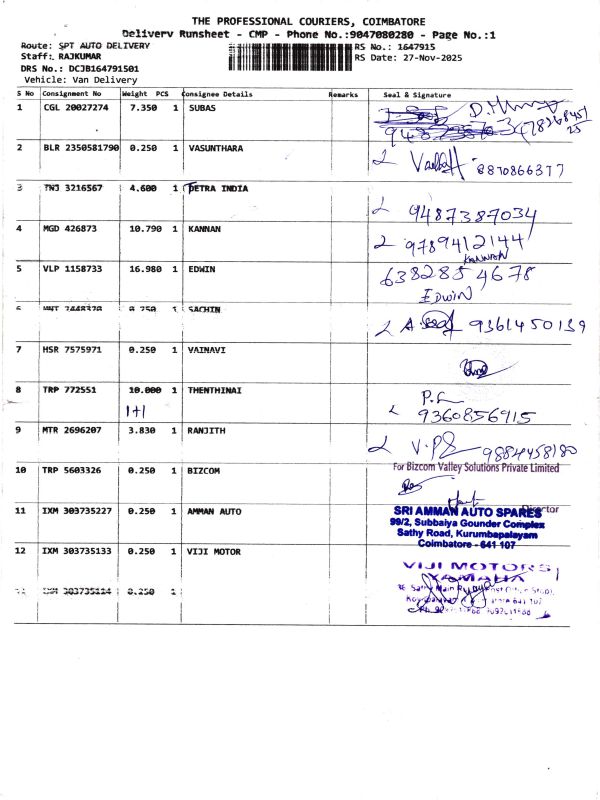 THE PROFESSIONAL COURIERS, COIMBATORE
Delivery Runsheet - CMP - Phone No.:9047080280 - Page No.:1
Route: SPT AUTO DELIVERY
Staff: RAJKUMAR
DRS No.: DCJB164791501
Vehicle: Van Delivery
RS No.: 1647915
RS Date: 27-Nov-2025
S No Consignment No Weight PCS Consignee Details Remarks Seal & Signature
1 CGL 20027274 7.350 1 SUBAS
2 BLR 2350581790 0.250 1 VASUNTHARA
8870866377
3 TNJ 3216567 4.600 1 PETRA INDIA
9487387034
4 MGD 426873 10.790 1 KANNAN
9789412144
KANNAN
5 VLP 1158733 16.980 1 EDWIN
6382854678
EDWIN
6 0.250 1 SACHIN
9361450139
7 HSR 7575971 0.250 1 VAINAVI
8 TRP 772551 10.000 1 THENTHINAI
1+1
9360856915
9 MTR 2696207 3.830 1 RANJITH
9884458180
10 TRP 5603326 0.250 1 BIZCOM
For Bizcom Valley Solutions Private Limited
Director
11 IXM 303735227 0.250 1 AMMAN AUTO
SRI AMMAN AUTO SPARES
99/2, Subbaiya Gounder Complex
Sathy Road, Kurumbapalayam
Coimbatore - 641 107
12 IXM 303735133 0.250 1 VIJI MOTOR
VIJI MOTORS
YAMAHA
IXM 303735114 0.250 1